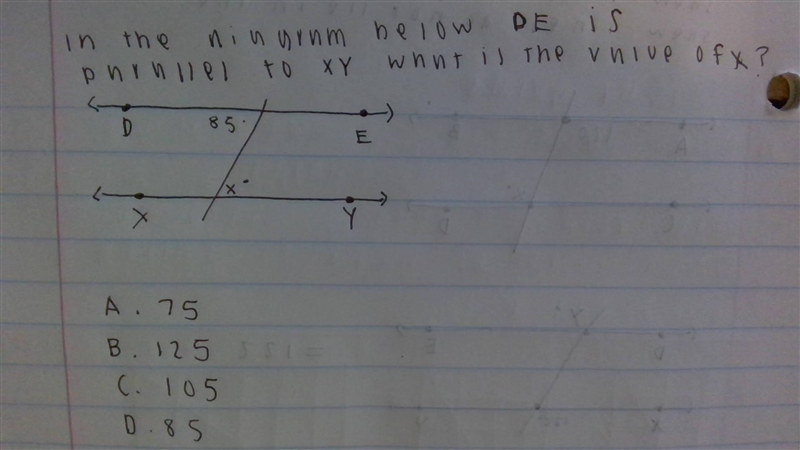 In the diagram below DE is
parallel to XY what is the value of x?
D
85°
E
x°
X
Y
A. 75
B. 125
C. 105
D. 85